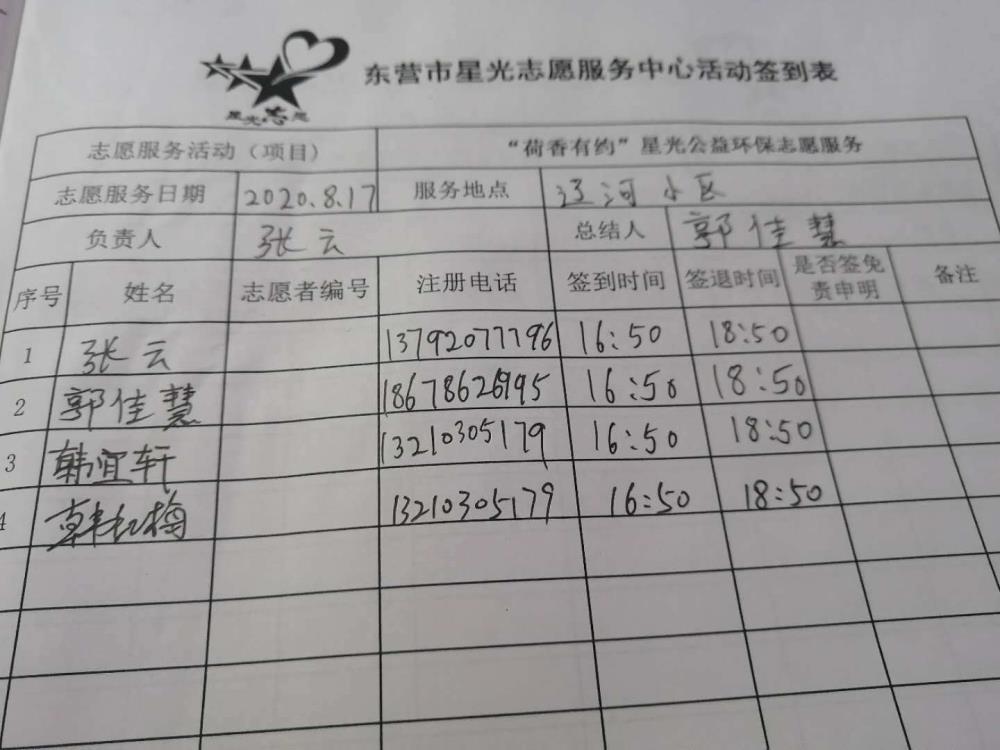 东营市星光志愿服务中心活动签到表
星光志愿
志愿服务活动（项目） “荷香有约”星光公益环保志愿服务
志愿服务日期 2020.8.17 服务地点 辽河小区
负责人 张云 总结人 郭佳慧
序号 姓名 志愿者编号 注册电话 签到时间 签退时间 是否签免责申明 备注
1 张云 13792077796 16:50 18:50
2 郭佳慧 18678626995 16:50 18:50
3 韩宜轩 13210305179 16:50 18:50
4 13210305179 16:50 18:50